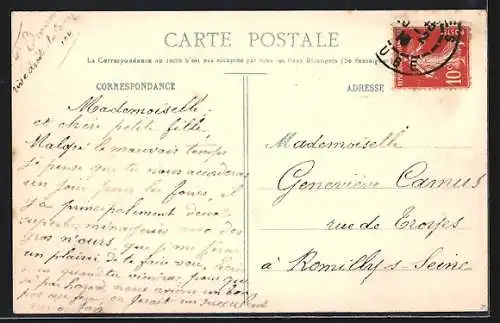 CARTE POSTALE
La Correspondance au recto n'est pas acceptée par tous les Pays Étrangers (Se renseigner
CORRESPONDANCE
ADRESSE
Mademoiselle
et chère petite fille,
Malgré le mauvais temps
je pense que tu nous accorderas
un jour pour les foires, il
y a principalement deux
superbes ménageries avec des
gros n'ours, que je me ferai
un plaisir de te faire voir,
quand tu viendras, pour que
par hasard nous avions un bon
on ferait un succulent
Mademoiselle
Geneviève Camus
rue de Troyes
à Romilly-s-Seine
10c
AUBE